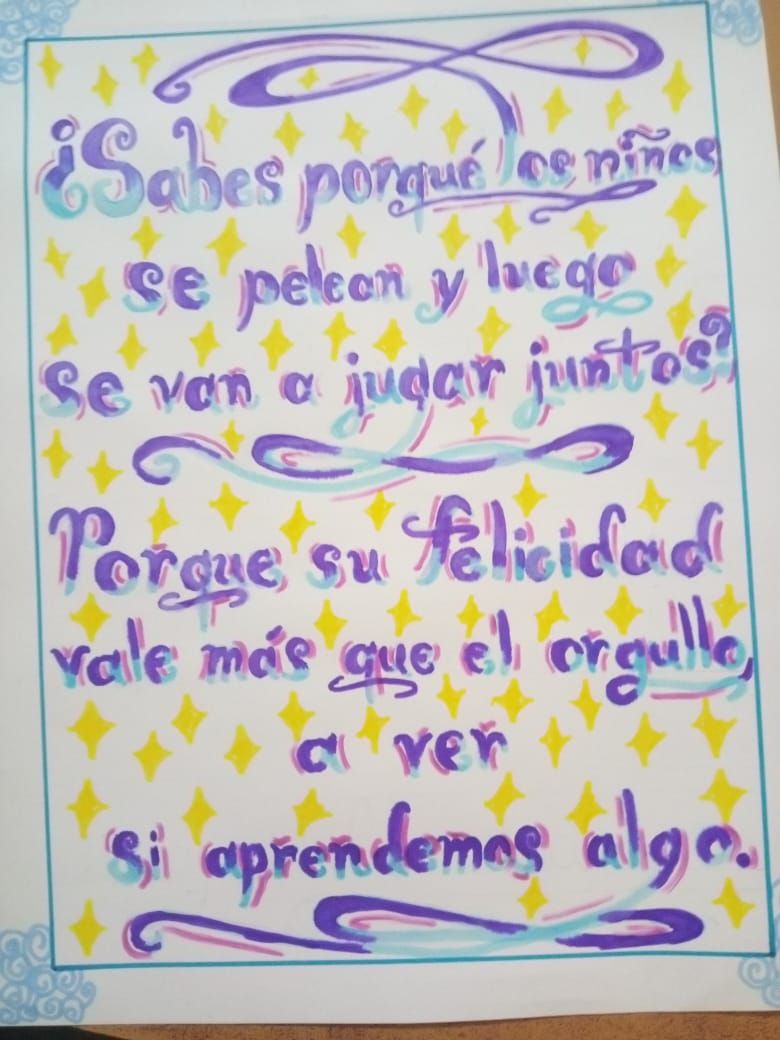 ¿Sabes porqué los niños
se pelean y luego
se van a jugar juntos?
Porque su felicidad
vale más que el orgullo,
a ver
si aprendemos algo.